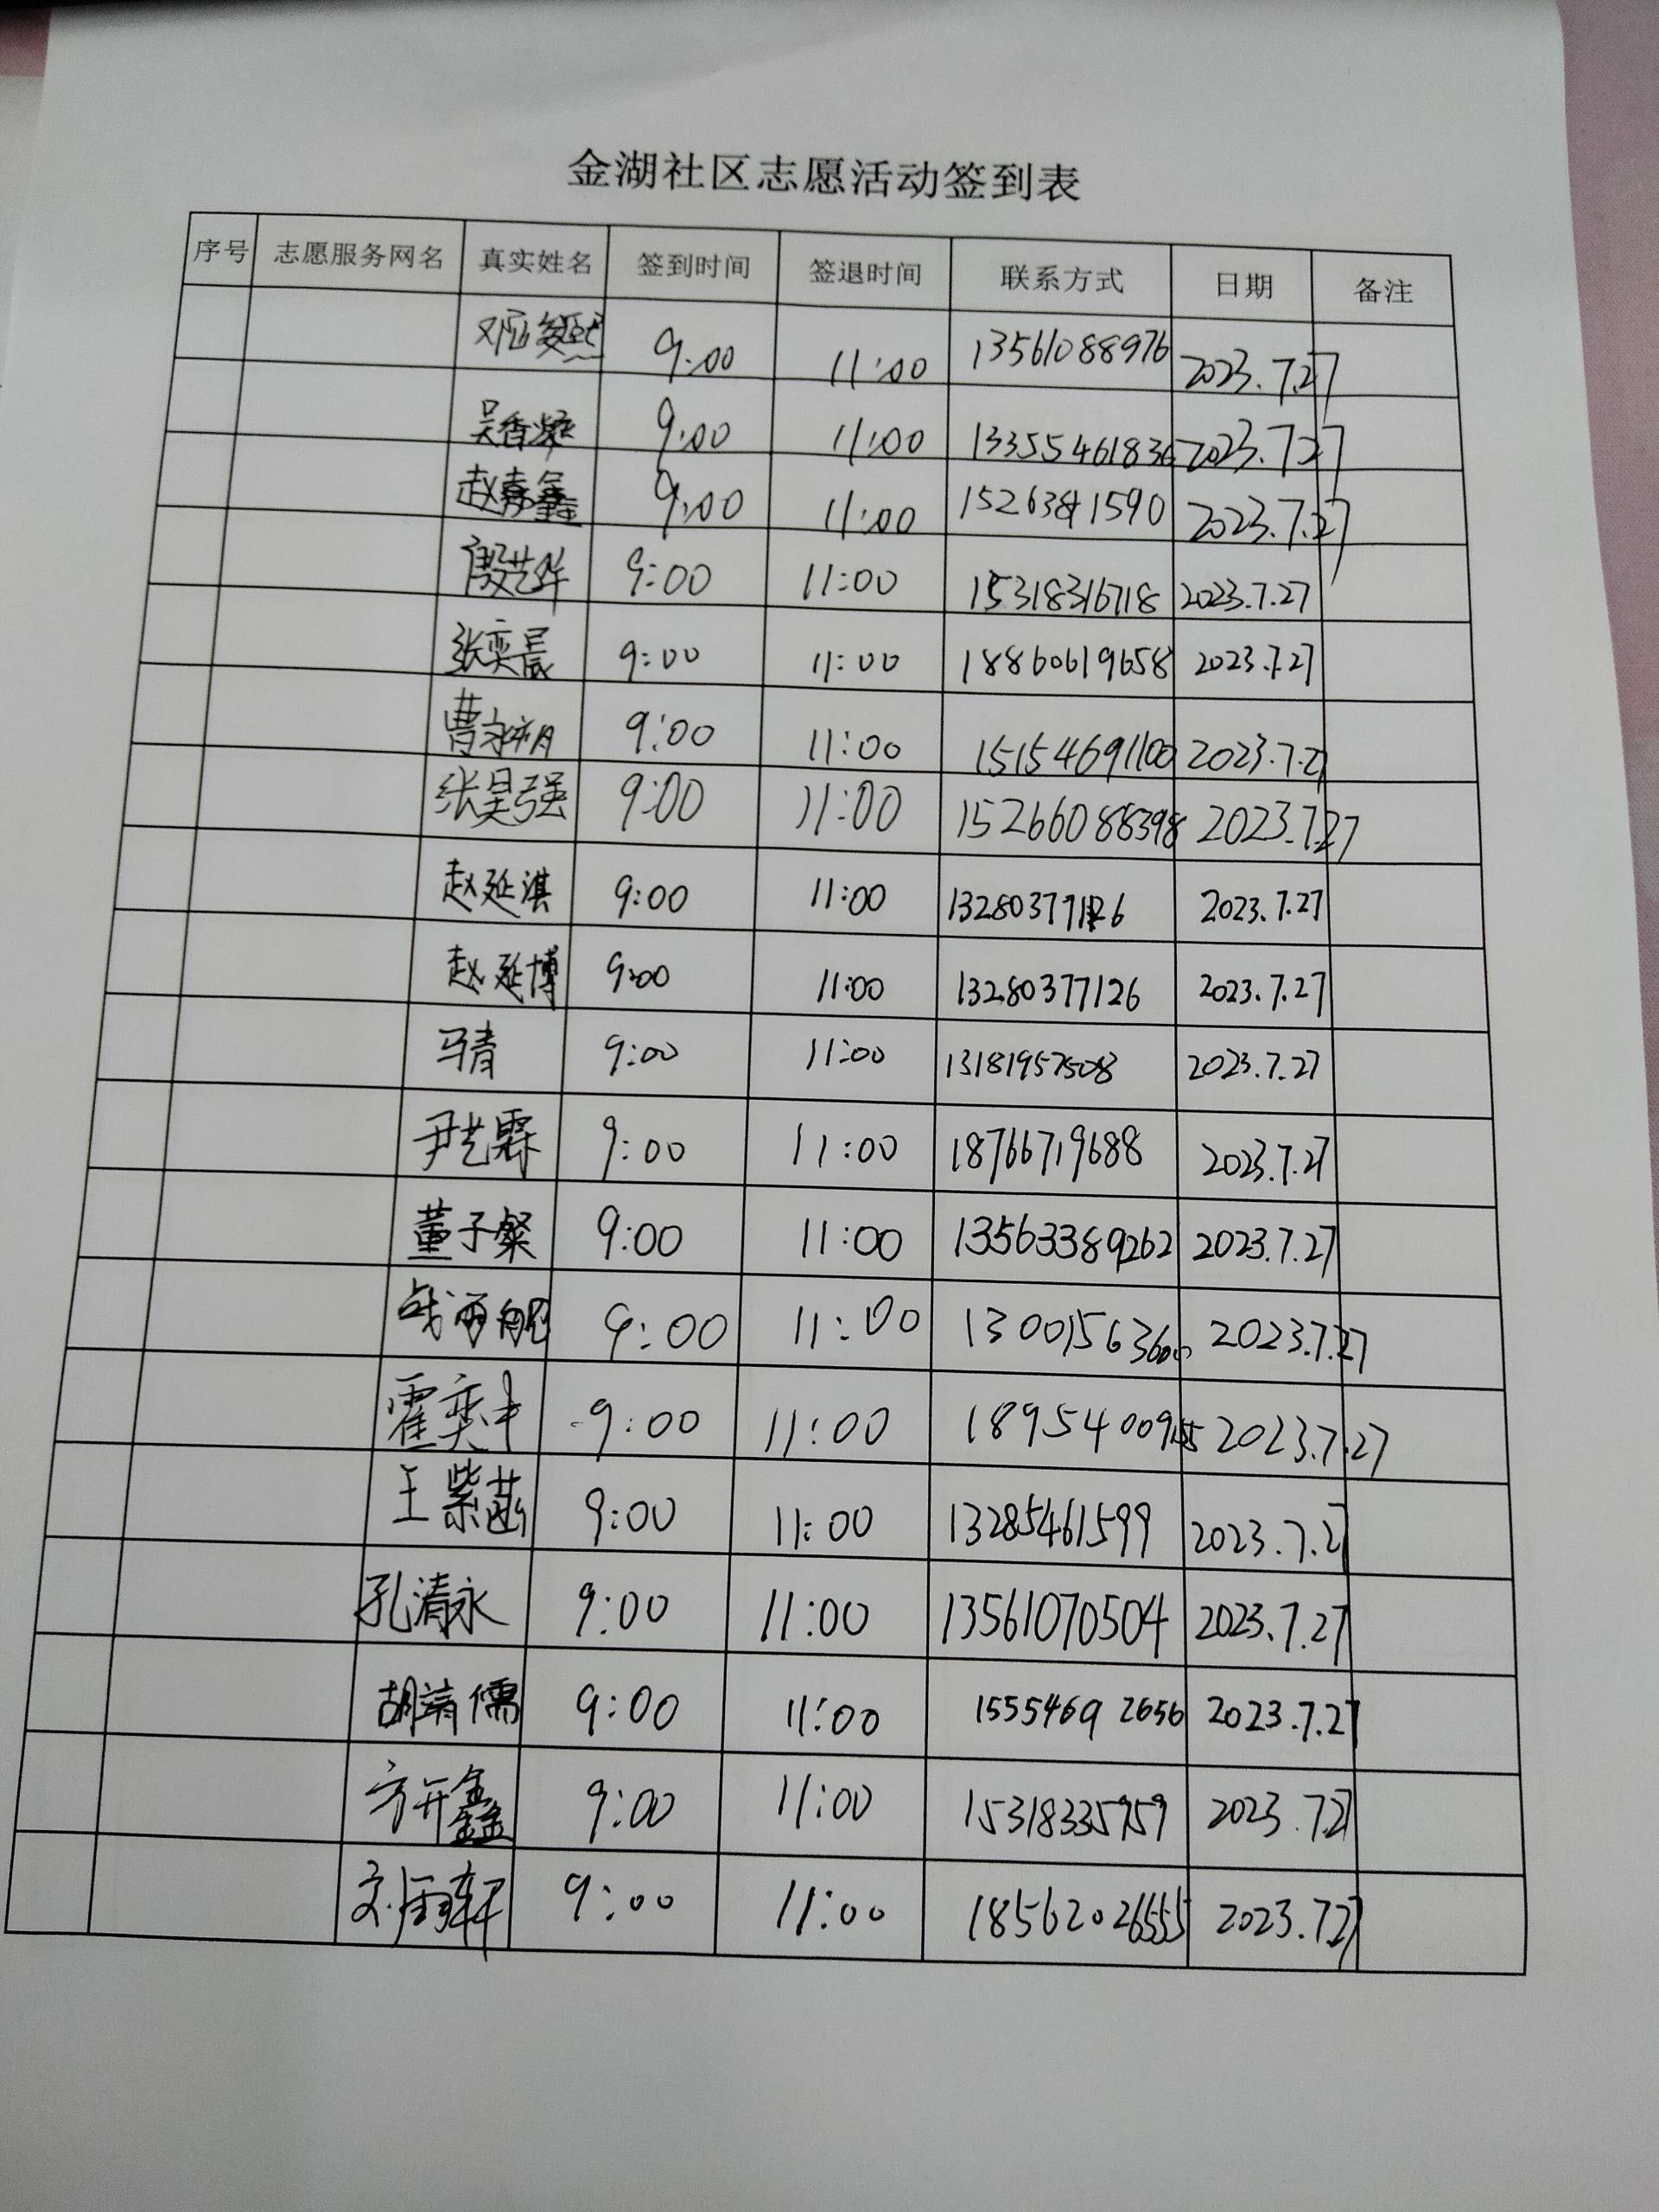 金湖社区志愿活动签到表
序号 志愿服务网名 真实姓名 签到时间 签退时间 联系方式 日期 备注
9:00 11:00 13561088976 2023.7.27
吴香凝 9:00 11:00 13355461836 2023.7.27
赵嘉鑫 9:00 11:00 2023.7.27
殷艺烨 9:00 11:00 15318316718 2023.7.27
张奕晨 9:00 11:00 18860619658 2023.7.27
曹永朔 9:00 11:00 15154691100 2023.7.27
张昊强 9:00 11:00 15266088398 2023.7.27
赵延淇 9:00 11:00 13280377126 2023.7.27
赵延博 9:00 11:00 13280377126 2023.7.27
马青 9:00 11:00 13181957508 2023.7.27
尹艺霖 9:00 11:00 18766719688 2023.7.27
董子粲 9:00 11:00 13563389262 2023.7.27
9:00 11:00 13001563600 2023.7.27
霍奕丰 9:00 11:00 2023.7.27
王紫菡 9:00 11:00 13285461599 2023.7.27
孔清永 9:00 11:00 13561070504 2023.7.27
胡靖儒 9:00 11:00 15554692656 2023.7.27
方开鑫 9:00 11:00 15318335959 2023.7.27
9:00 11:00 18562026555 2023.7.27